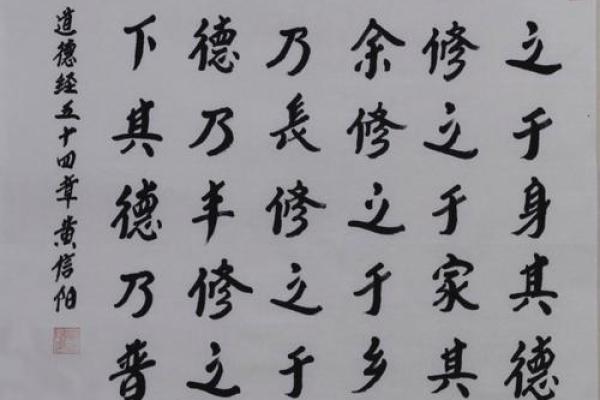 之于身其德
修之于家其
余修之于乡
乃長修之于
德乃丰修之
下其德乃普
道德经五十四章黄信阳